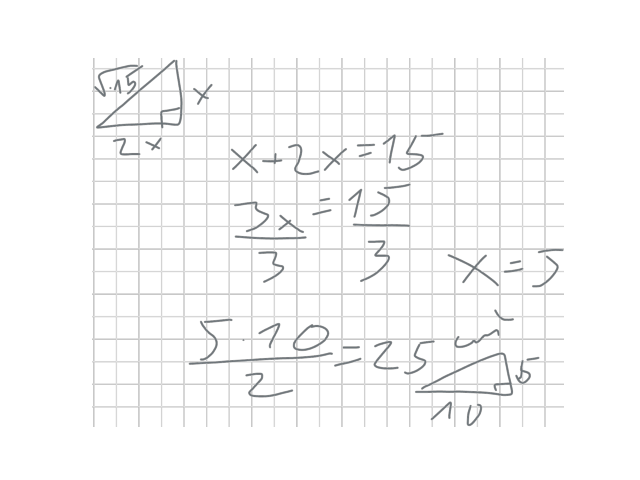 √15
x
2x
x+2x=15
3x/3=15/3
x=5
5·10/2=25 cm²
5
10